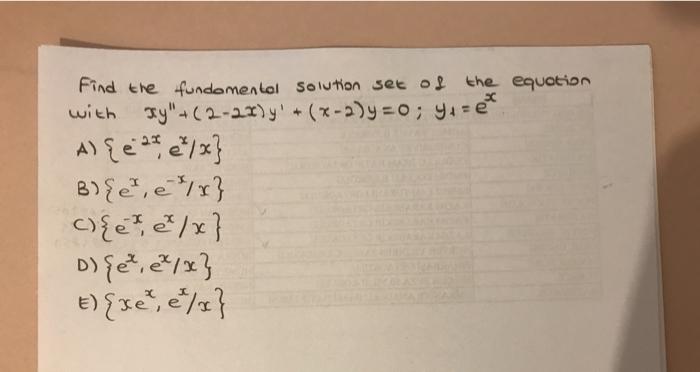 Find the fundamental solution set of the equation
with xy"+(2-2x)y' + (x-2)y=0; y₁=eˣ
A) {e⁻²ˣ, eˣ/x}
B) {eˣ, e⁻ˣ/x}
C) {e⁻ˣ, eˣ/x}
D) {eˣ, eˣ/x}
E) {xeˣ, eˣ/x}